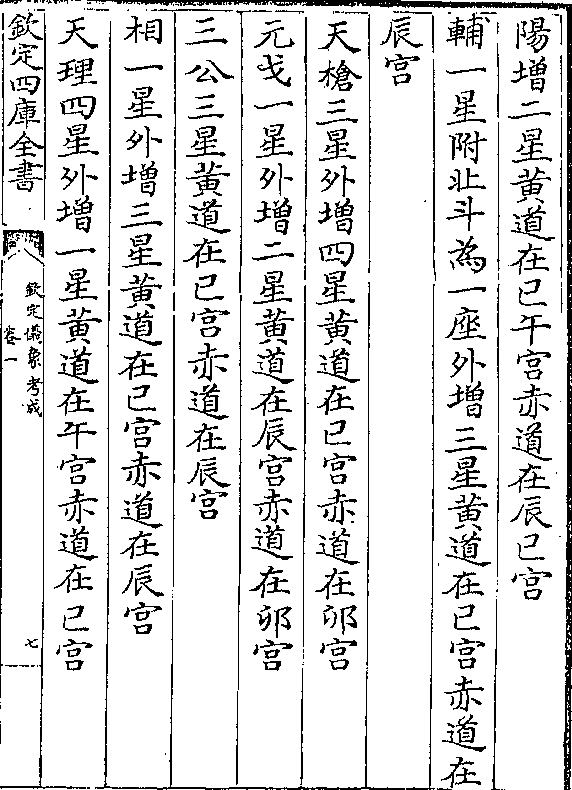 陽增二星黃道在巳午宮赤道在辰巳宮
輔一星附北斗為一座外增三星黃道在巳宮赤道在
辰宮
天槍三星外增四星黃道在巳宮赤道在卯宮
元戈一星外增二星黃道在辰宮赤道在卯宮
三公三星黃道在巳宮赤道在辰宮
相一星外增三星黃道在巳宮赤道在辰宮
天理四星外增一星黃道在午宮赤道在巳宮
欽定四庫全書
欽定儀象考成
卷一
七